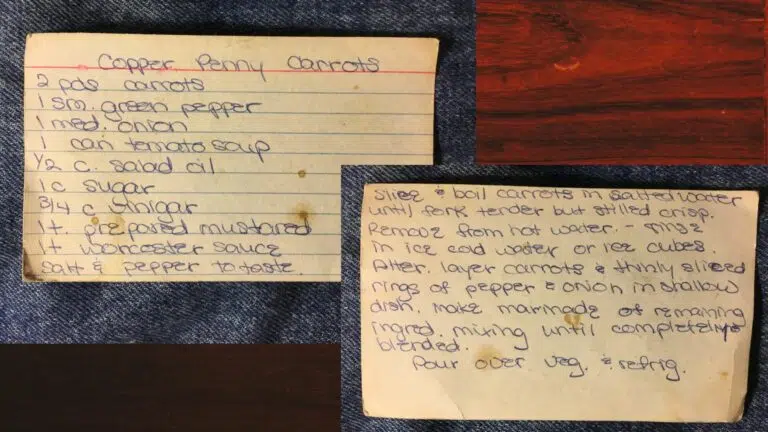 Copper Penny Carrots
2 pds carrots
1 sm. green pepper
1 med. onion
1 can tomato soup
1/2 c. salad oil
1 c sugar
3/4 c vinigar
1 t. prepared mustared
1 t worcester sauce
salt & pepper to taste.
slice & boil carrots in salted water
until fork tender but stilled crisp.
Remove from hot water. - rinse
in ice cold water or ice cubes.
Alter. layer carrots & thinly sliced
rings of pepper & onion in shallow
dish. Make marinade of remaining
ingred. mixing until completely
blended.
Pour over veg. & refrig.